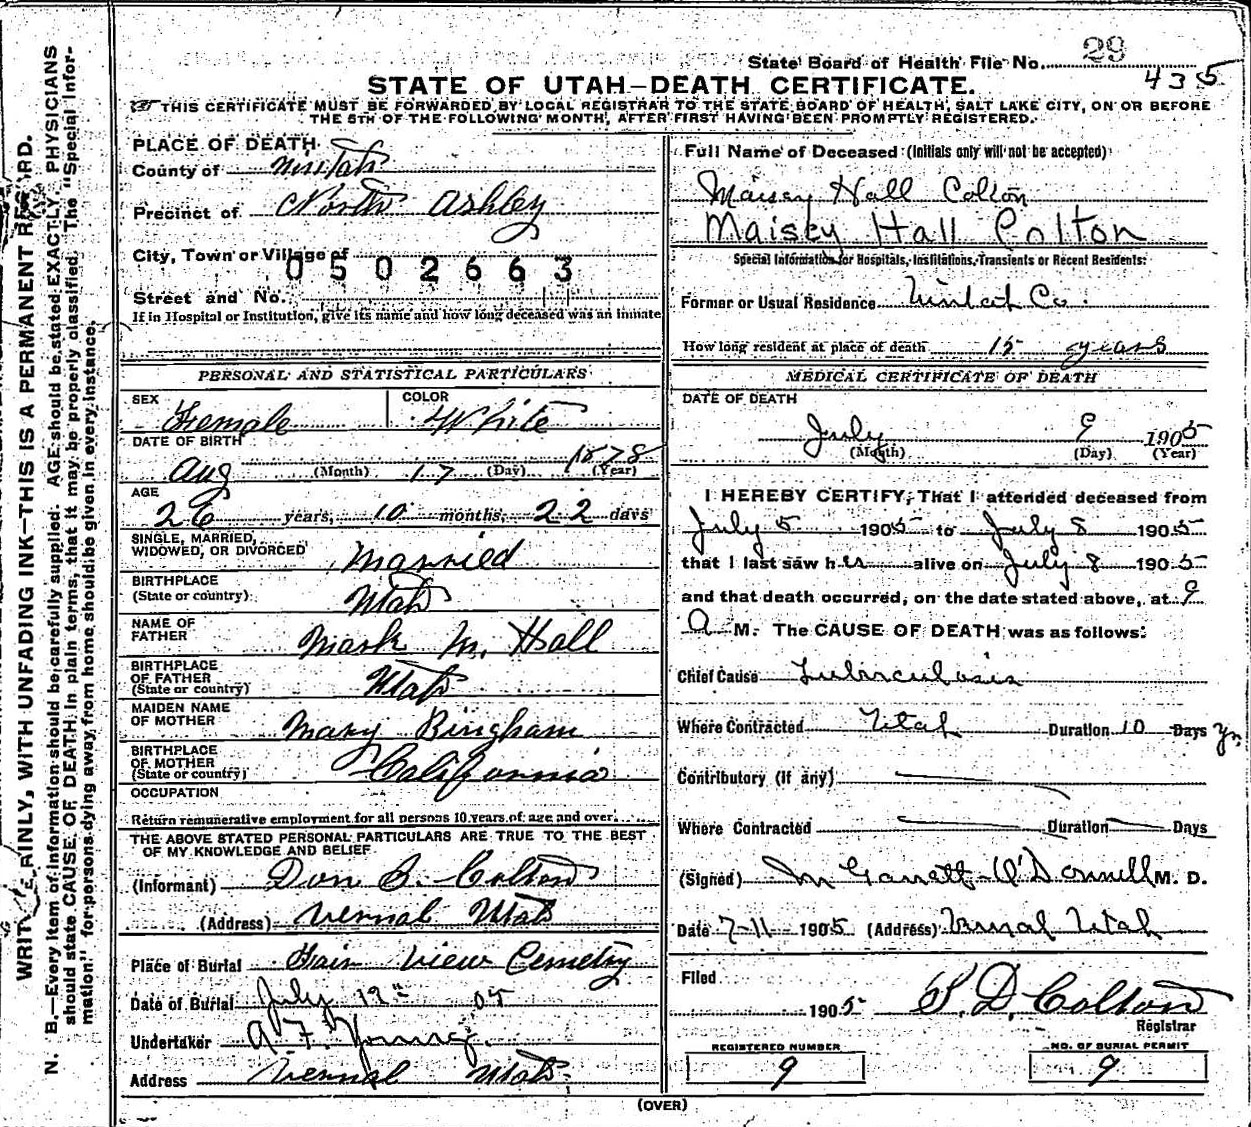 State Board of Health File No. 29
435
STATE OF UTAH—DEATH CERTIFICATE.
THIS CERTIFICATE MUST BE FORWARDED BY LOCAL REGISTRAR TO THE STATE BOARD OF HEALTH, SALT LAKE CITY, ON OR BEFORE
THE 5TH OF THE FOLLOWING MONTH, AFTER FIRST HAVING BEEN PROMPTLY REGISTERED.
WRITE PLAINLY, WITH UNFADING INK—THIS IS A PERMANENT RECORD.
N. B.—Every item of information should be carefully supplied. AGE should be stated EXACTLY. PHYSICIANS
should state CAUSE OF DEATH in plain terms, that it may be properly classified. The "Special Infor-
mation" for persons dying away from home should be given in every instance.
PLACE OF DEATH
County of Uintah
Precinct of North Ashley
City, Town or Village of
0502663
Street and No.
If in Hospital or Institution, give its name and how long deceased was an inmate
PERSONAL AND STATISTICAL PARTICULARS
SEX Female COLOR White
DATE OF BIRTH
Aug (Month) 17 (Day) 1878 (Year)
AGE
26 years, 10 months, 22 days
SINGLE, MARRIED,
WIDOWED, OR DIVORCED Married
BIRTHPLACE
(State or country) Utah
NAME OF
FATHER Mark M. Hall
BIRTHPLACE
OF FATHER
(State or country) Utah
MAIDEN NAME
OF MOTHER Mary Bingham
BIRTHPLACE
OF MOTHER
(State or country) California
OCCUPATION
Return remunerative employment for all persons 10 years of age and over.
THE ABOVE STATED PERSONAL PARTICULARS ARE TRUE TO THE BEST
OF MY KNOWLEDGE AND BELIEF
(Informant) Don B. Colton
(Address) Vernal Utah
Place of Burial Fair View Cemetry
Date of Burial July 05
Undertaker A. F. Young.
Address Vernal Utah
Full Name of Deceased (Initials only will not be accepted)
Maisey Hall Colton
Maisey Hall Colton
Special Information for Hospitals, Institutions, Transients or Recent Residents:
Former or Usual Residence Uintah Co.
How long resident at place of death 15 years
MEDICAL CERTIFICATE OF DEATH
DATE OF DEATH
July 9 1905
(Month) (Day) (Year)
I HEREBY CERTIFY, That I attended deceased from
July 5 1905 to July 8 1905
that I last saw her alive on July 8 1905
and that death occurred, on the date stated above, at 9
A M. The CAUSE OF DEATH was as follows:
Chief Cause Tuberculosis
Where Contracted Utah Duration 10 Days Yrs
Contributory (if any)
Where Contracted Duration Days
(Signed) M Garrett O'Donnell M. D.
Date 7-11 1905 (Address) Vernal Utah
Filed
1905 S. D. Colton
Registrar
REGISTERED NUMBER
9
NO. OF BURIAL PERMIT
9
(OVER)